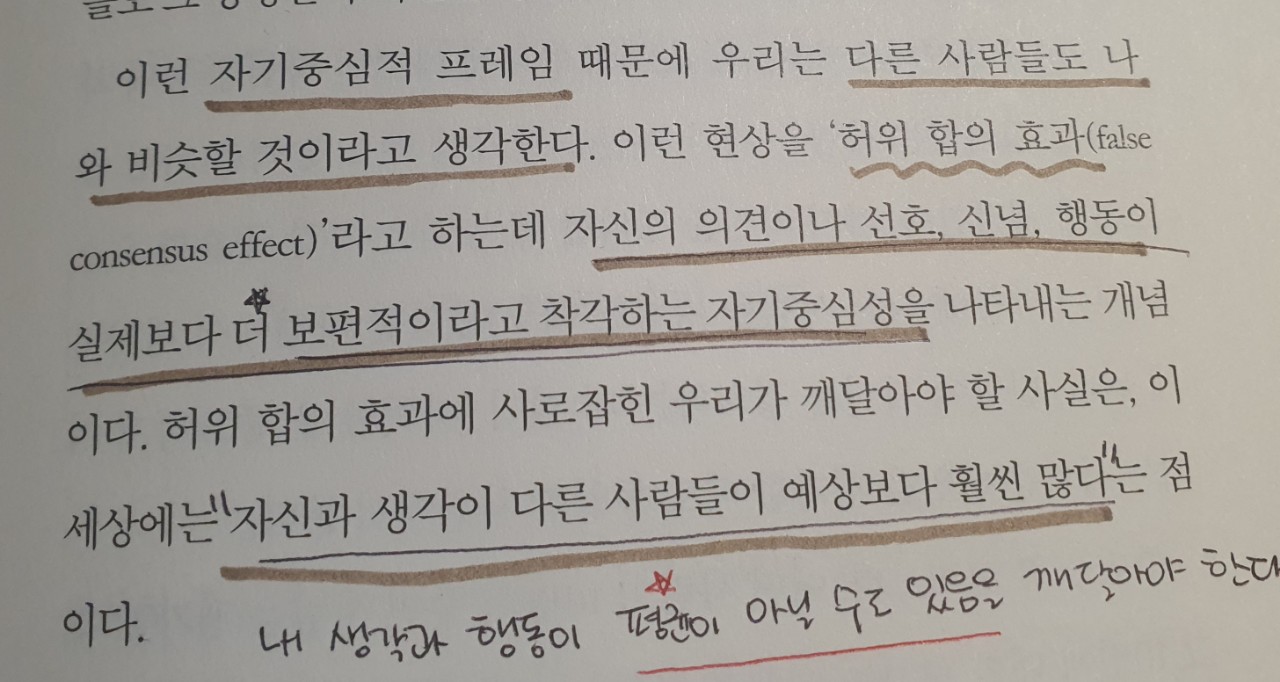 이런 자기중심적 프레임 때문에 우리는 다른 사람들도 나
와 비슷할 것이라고 생각한다. 이런 현상을 ‘허위 합의 효과(false
consensus effect)’라고 하는데 자신의 의견이나 선호, 신념, 행동이
실제보다 더 보편적이라고 착각하는 자기중심성을 나타내는 개념
이다. 허위 합의 효과에 사로잡힌 우리가 깨달아야 할 사실은, 이
세상에는 "자신과 생각이 다른 사람들이 예상보다 훨씬 많다"는 점
이다.
내 생각과 행동이 평균이 아닐 수도 있음을 깨달아야 한다